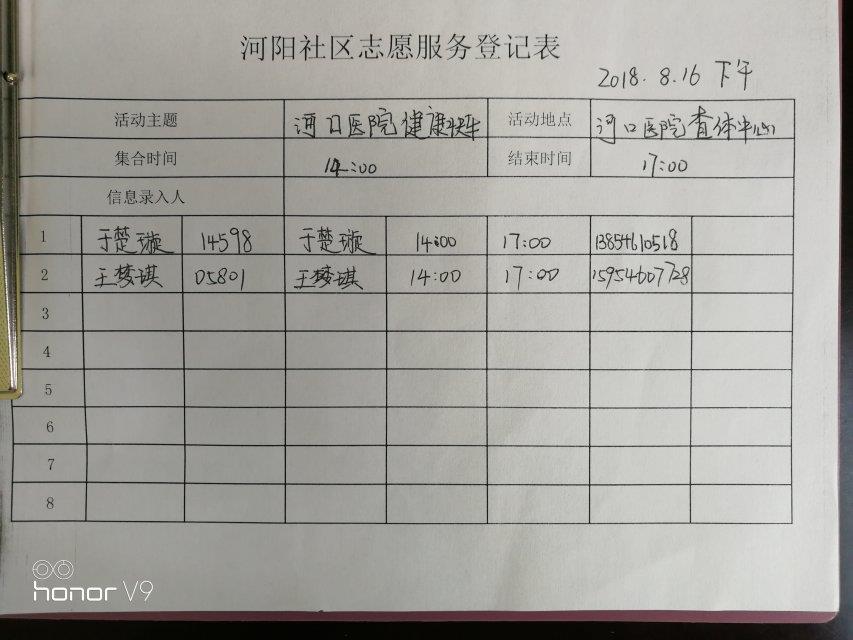 河阳社区志愿服务登记表
2018.8.16 下午
活动主题 河口医院健康快车 活动地点 河口医院查体中心
集合时间 14:00 结束时间 17:00
信息录入人
1 于楚璇 14598 于楚璇 14:00 17:00 13854610518
2 王梦琪 05801 王梦琪 14:00 17:00 15954607728
3
4
5
6
7
8
honor V9